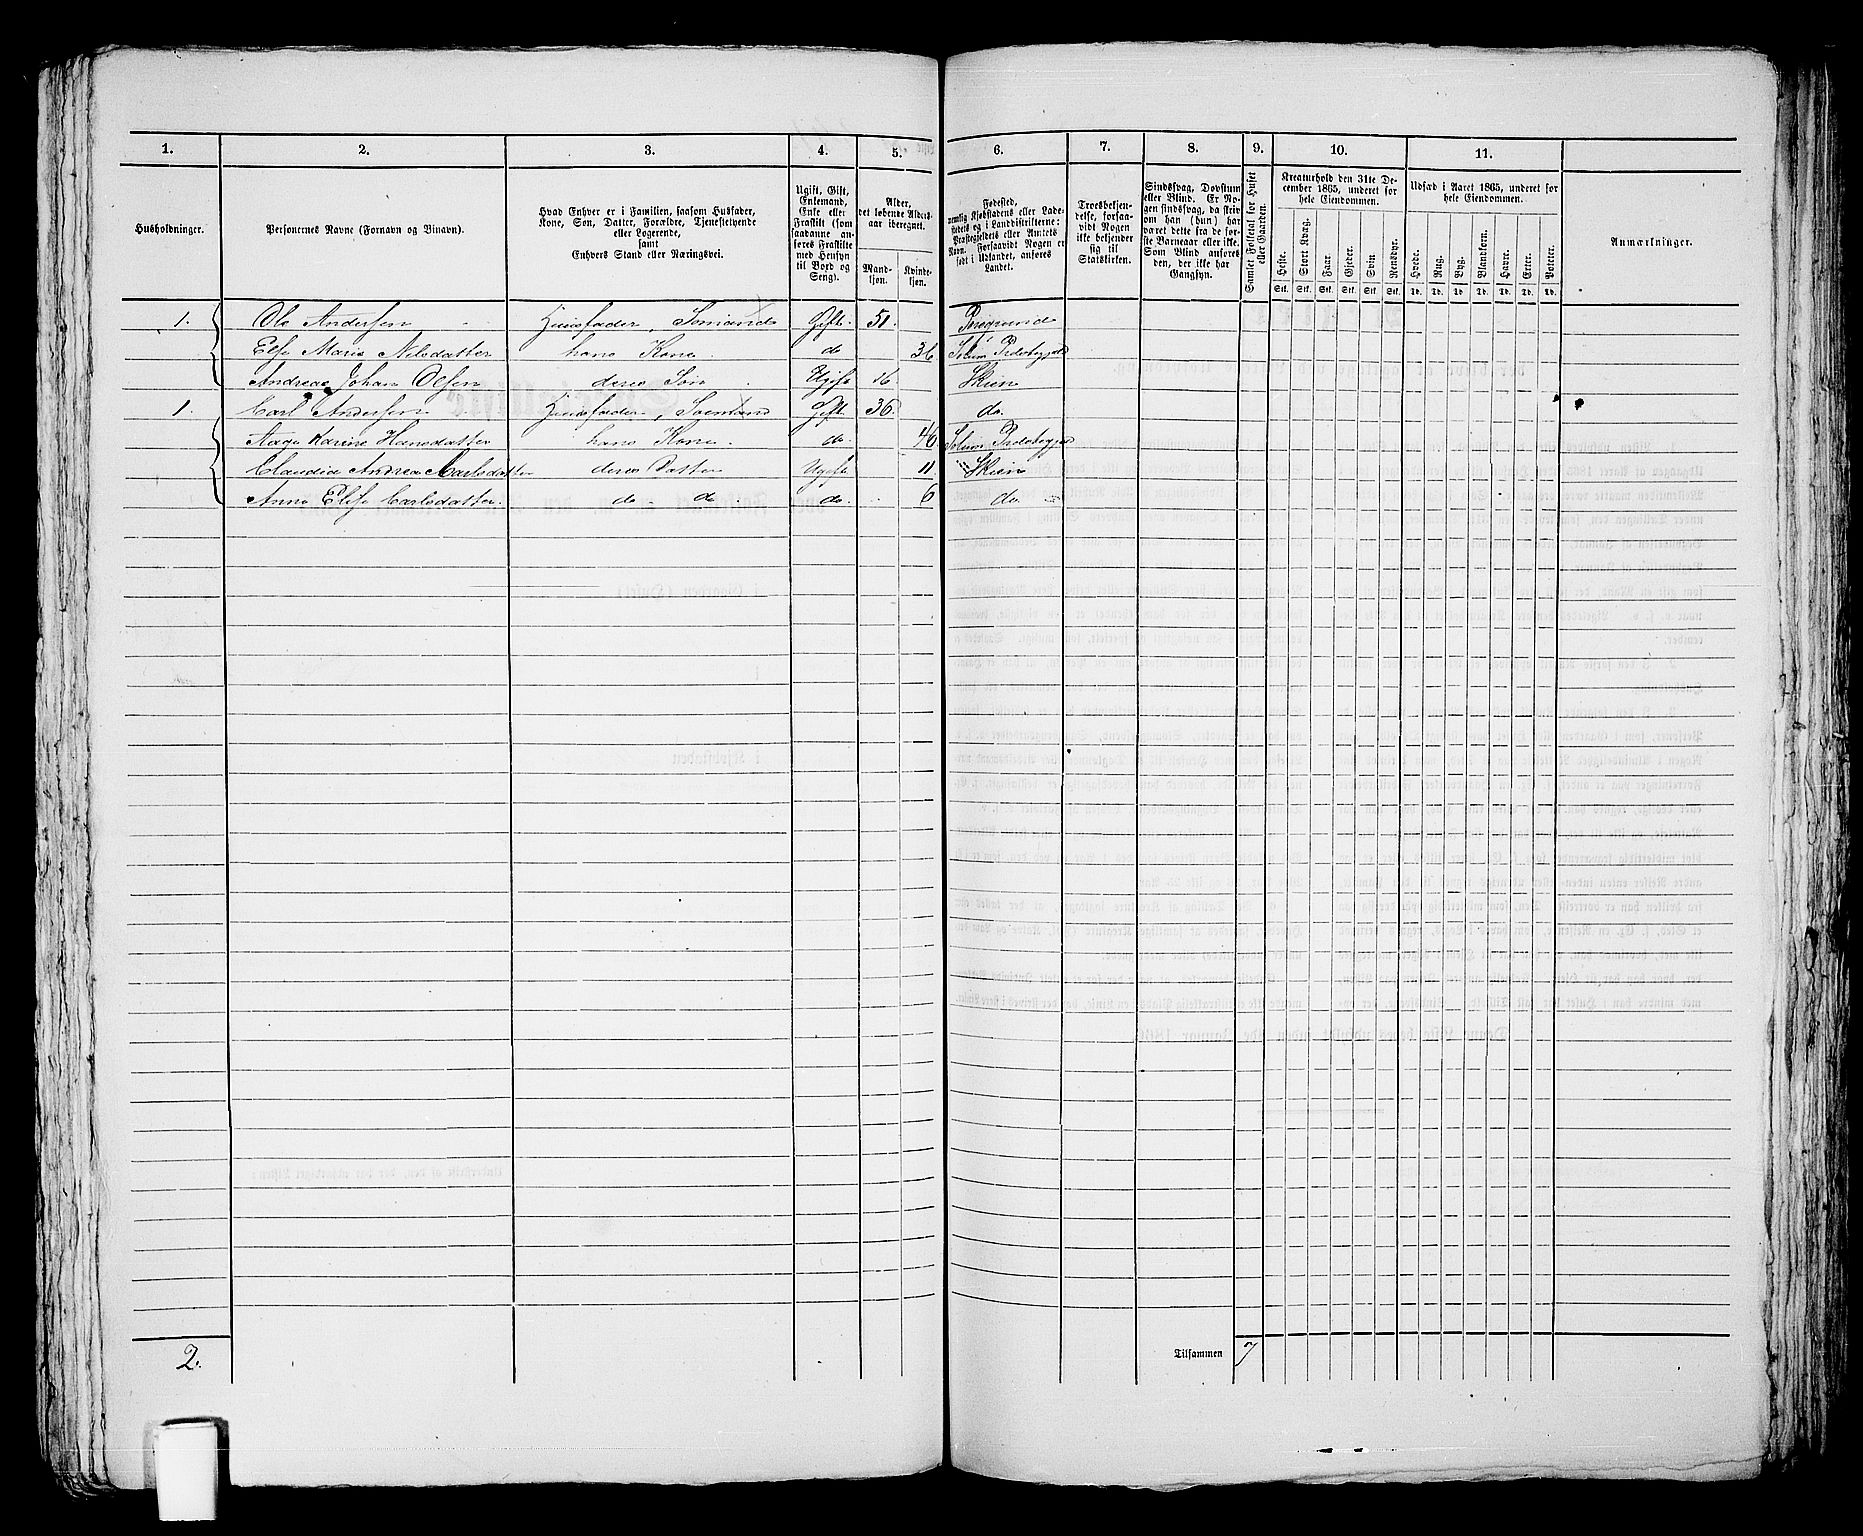 1. 2. 3. 4. 5. 6. 7. 8. 9. 10. 11.
Husholdninger.
Personernes Navne (Fornavn og Vinavn).
Hvad Enhver er i Familien, saasom Husfader,
Kone, Søn, Datter, Forældre, Tjenestetyende
eller Logerende,
samt
Enhvers Stand eller Næringsvei.
Ugift, Gift,
Enkemand,
Enke eller
Fraskilt (som
saadanne an-
føres Fraskilte
med Hensyn
til Bord og
Seng).
Alder,
det løbende Alders-
aar iberegnet.
Mand-
kjøn.
Kvinde-
kjøn.
Fødested,
nemlig Kjøbstadens eller Lade-
stedets og i Landdistrikterne:
Præstegjeldets eller Amtets
Navn. Forsaavidt Nogen er
født i Udlandet, anføres
Landet.
Troesbekjen-
delse, forsaa-
vidt Nogen
ikke bekjender
sig til
Statskirken.
Sindssvag, Døvstum
eller Blind. Er No-
gen sindssvag, da skriv
om han (hun) har
været dette fra de før-
ste Barneaar eller ikke.
Som Blind anføres
den, der ikke har
Gangsyn.
Samlet Folketal for Huset
eller Gaarden.
Kreaturhold den 31te De-
cember 1865, underet for
hele Eiendommen.
Heste. Stort Kvæg. Faar. Gjeder. Svin. Rensdyr.
Stk. Stk. Stk. Stk. Stk. Stk.
Udsæd i Aaret 1865, underet for
hele Eiendommen.
Hvede. Rug. Byg. Blandkorn. Havre. Erter. Poteter.
Td. Td. Td. Td. Td. Td. Td.
Anmærkninger.
1. Ole Andersen Huusfader, Sømand Gift. 51. Porsgrund
Else Marie Nilsdatter hans Kone. do 36 Solum Prestegjeld
Andreas Johan Olsen deres Søn Ugift 16. Skien
1. Carl Andersen Huusfader, Sømand Gift 36. do.
Aage Karine Hansdatter hans Kone. do. 46 Solum Prestegjeld
Claudia Andrea Carlsdatter deres Datter Ugift 11. Skien
Anne Else Carlsdatter. do - do do. 6 do.
2.
Tilsammen 7